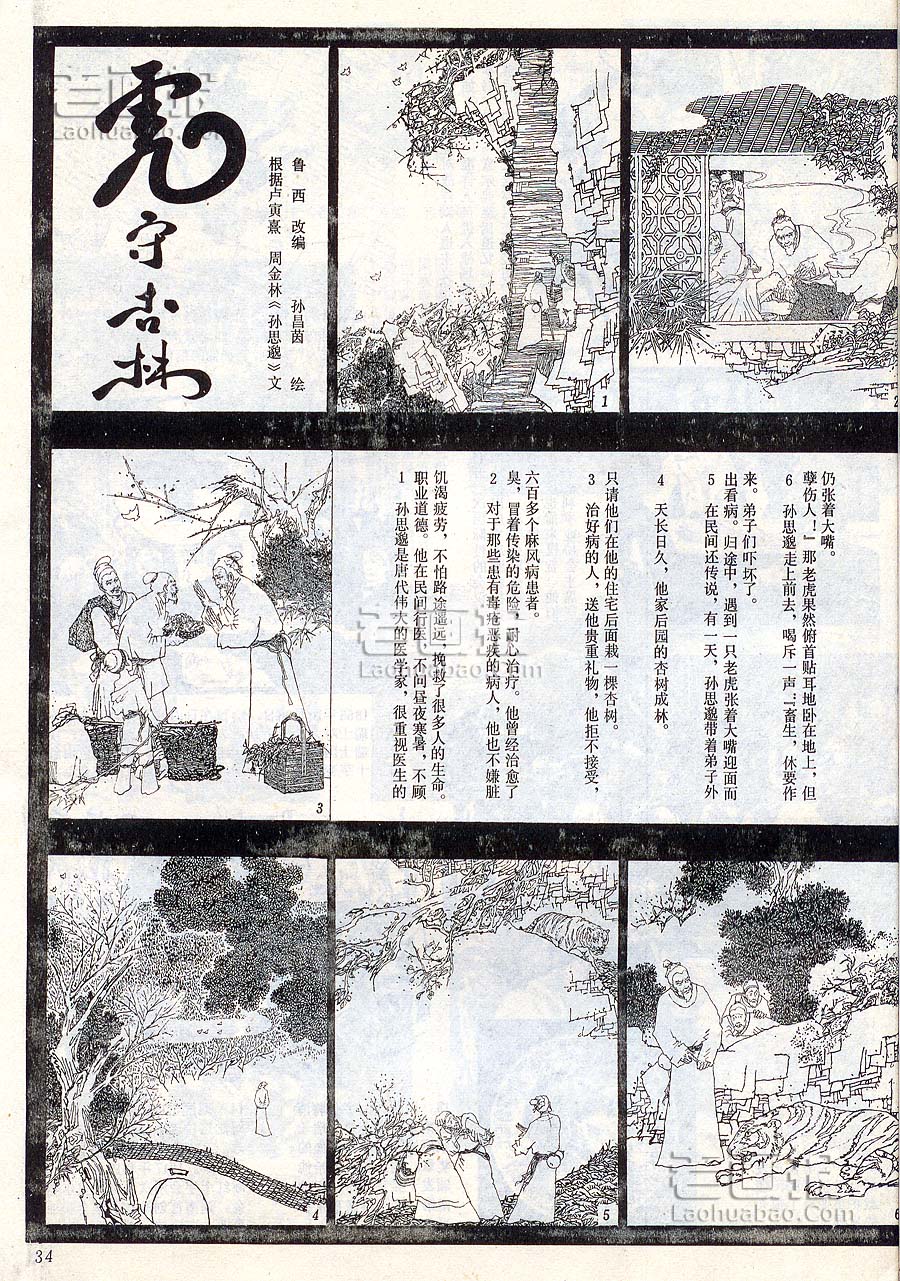 虎守杏林
根据卢寅熹 周金林《孙思邈》文
鲁西 改编 孙昌茵 绘
1
2
1 孙思邈是唐代伟大的医学家，很重视医生的
职业道德。他在民间行医，不问昼夜寒暑，不顾
饥渴疲劳，不怕路途遥远，挽救了很多人的生命。
2 对于那些患有毒疮恶疾的病人，他也不嫌脏
臭，冒着传染的危险，耐心治疗。他曾经治愈了
六百多个麻风病患者。
3 治好病的人，送他贵重礼物，他拒不接受，
只请他们在他的住宅后面栽一棵杏树。
4 天长日久，他家后园的杏树成林。
5 在民间还传说，有一天，孙思邈带着弟子外
出看病。归途中，遇到一只老虎张着大嘴迎面而
来。弟子们吓坏了。
6 孙思邈走上前去，喝斥一声：“畜生，休要作
孽伤人！”那老虎果然俯首贴耳地卧在地上，但
仍张着大嘴。
3
4
5
6
34
老画报
Laohuabao.com
老画报
Laohuabao.com
老画报
LaohuaBao.Com